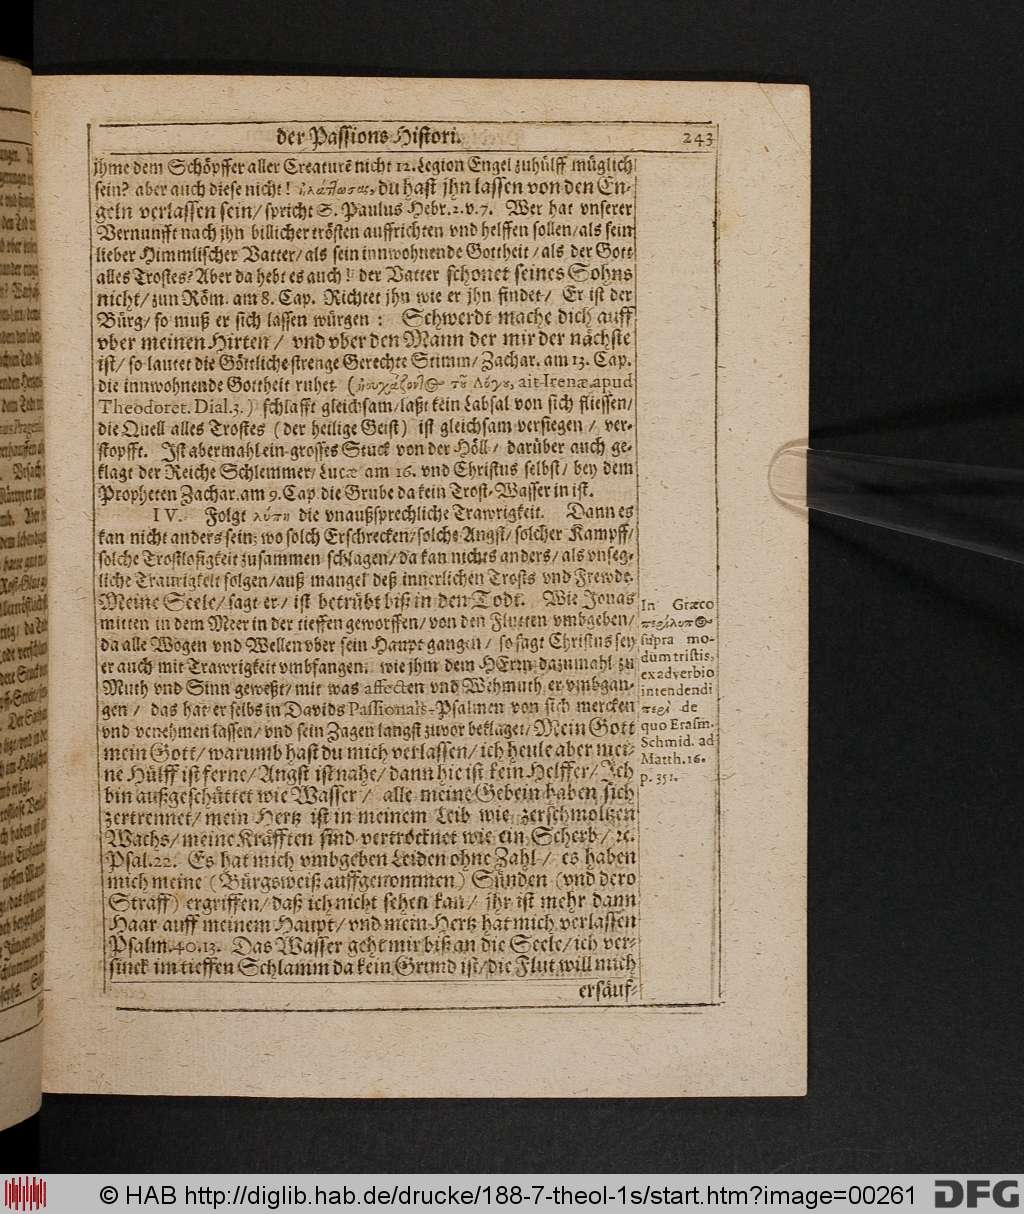 der Passions Histori. 243
jhme dem Schöpffer aller Creaturẽ nicht 12. Legion Engel zuhülff müglich
sein? aber auch diese nicht! ἠλάττωσας, du hast jhn lassen von den En-
geln verlassen sein/ spricht S. Paulus Hebr. 2. v. 7. Wer hat vnserer
Vernunfft nach jhn billicher trösten auffrichten vnd helffen sollen/ als sein
lieber Himmlischer Vatter/ als sein innwohnende Gottheit/ als der Gott
alles Trostes? Aber da hebt es auch! der Vatter schonet seines Sohns
nicht/ zun Röm. am 8. Cap. Richtet jhn wie er jhn findet/ Er ist der
Bürg/ so muß er sich lassen würgen: Schwerdt mache dich auff
vber meinen Hirten/ vnd vber den Mann der mir der nächste
ist/ so lautet die Göttliche strenge Gerechte Stimm/ Zachar. am 13. Cap.
die innwohnende Gottheit ruhet (ἡσυχάζοντος τοῦ Λόγου, ait Irenæ. apud
Theodoret. Dial. 3.) schlafft gleichsam/ laßt kein Labsal von sich fliessen/
die Quell alles Trostes (der heilige Geist) ist gleichsam versiegen/ ver-
stopfft. Ist abermahl ein grosses Stuck von der Höll/ darüber auch ge-
klagt der Reiche Schlemmer/ Lucæ am 16. vnd Christus selbst/ bey dem
Propheten Zachar. am 9. Cap. die Grube da kein Trost-Wasser in ist.
IV. Folgt λύπη die vnaußsprechliche Trawrigkeit. Dann es
kan nicht anders sein; wo solch Erschrecken/ solche Angst/ solcher Kampff/
solche Trostlosigkeit zusammen schlagen/ da kan nichts anders/ als vnseg-
liche Traurigkeit folgen/ auß mangel deß innerlichen Trosts vnd Frewde.
Meine Seele/ sagt er/ ist betrübt biß in den Todt. Wie Jonas
mitten in dem Meer in der tieffen geworffen/ von den Flutten vmbgeben/
da alle Wogen vnd Wellen vber sein Haupt gangen/ so sagt Christus sey
er auch mit Trawrigkeit vmbfangen: wie jhm dem HErrn dazumahl zu
Muth vnd Sinn geweßt/ mit was affecten vnd Wehmuth er vmbgan-
gen/ das hat er selbs in Davids Passionals-Psalmen von sich mercken
vnd vernehmen lassen/ vnd sein Zagen langst zuvor beklaget/ Mein Gott
mein Gott/ warumb hast du mich verlassen/ ich heule aber mei-
ne Hülff ist ferne/ Angst ist nahe/ dann hie ist kein Helffer/ Ich
bin außgeschüttet wie Wasser/ alle meine Gebein haben sich
zertrennet/ mein Hertz ist in meinem Leib wie zerschmoltzen
Wachs/ meine Kräfften sind vertröcknet wie ein Scherb/ ꝛc.
Psal. 22. Es hat mich vmbgeben Leiden ohne Zahl/ es haben
mich meine (Bürgsweiß auffgenommen) Sünden (vnd dero
Straff) ergriffen/ daß ich nicht sehen kan/ jhr ist mehr dann
Haar auff meinem Haupt/ vnd mein Hertz hat mich verlassen
Psalm. 40. 13. Das Wasser geht mir biß an die Seele/ ich ver-
sinck im tieffen Schlamm da kein Grund ist/ die Flut will mich
ersäuf-
In Græco
περίλυπος
supra mo-
dum tristis,
ex adverbio
intendendi
περὶ de
quo Erasm.
Schmid. ad
Matth. 16.
p. 351.
© HAB http://diglib.hab.de/drucke/188-7-theol-1s/start.htm?image=00261
DFG